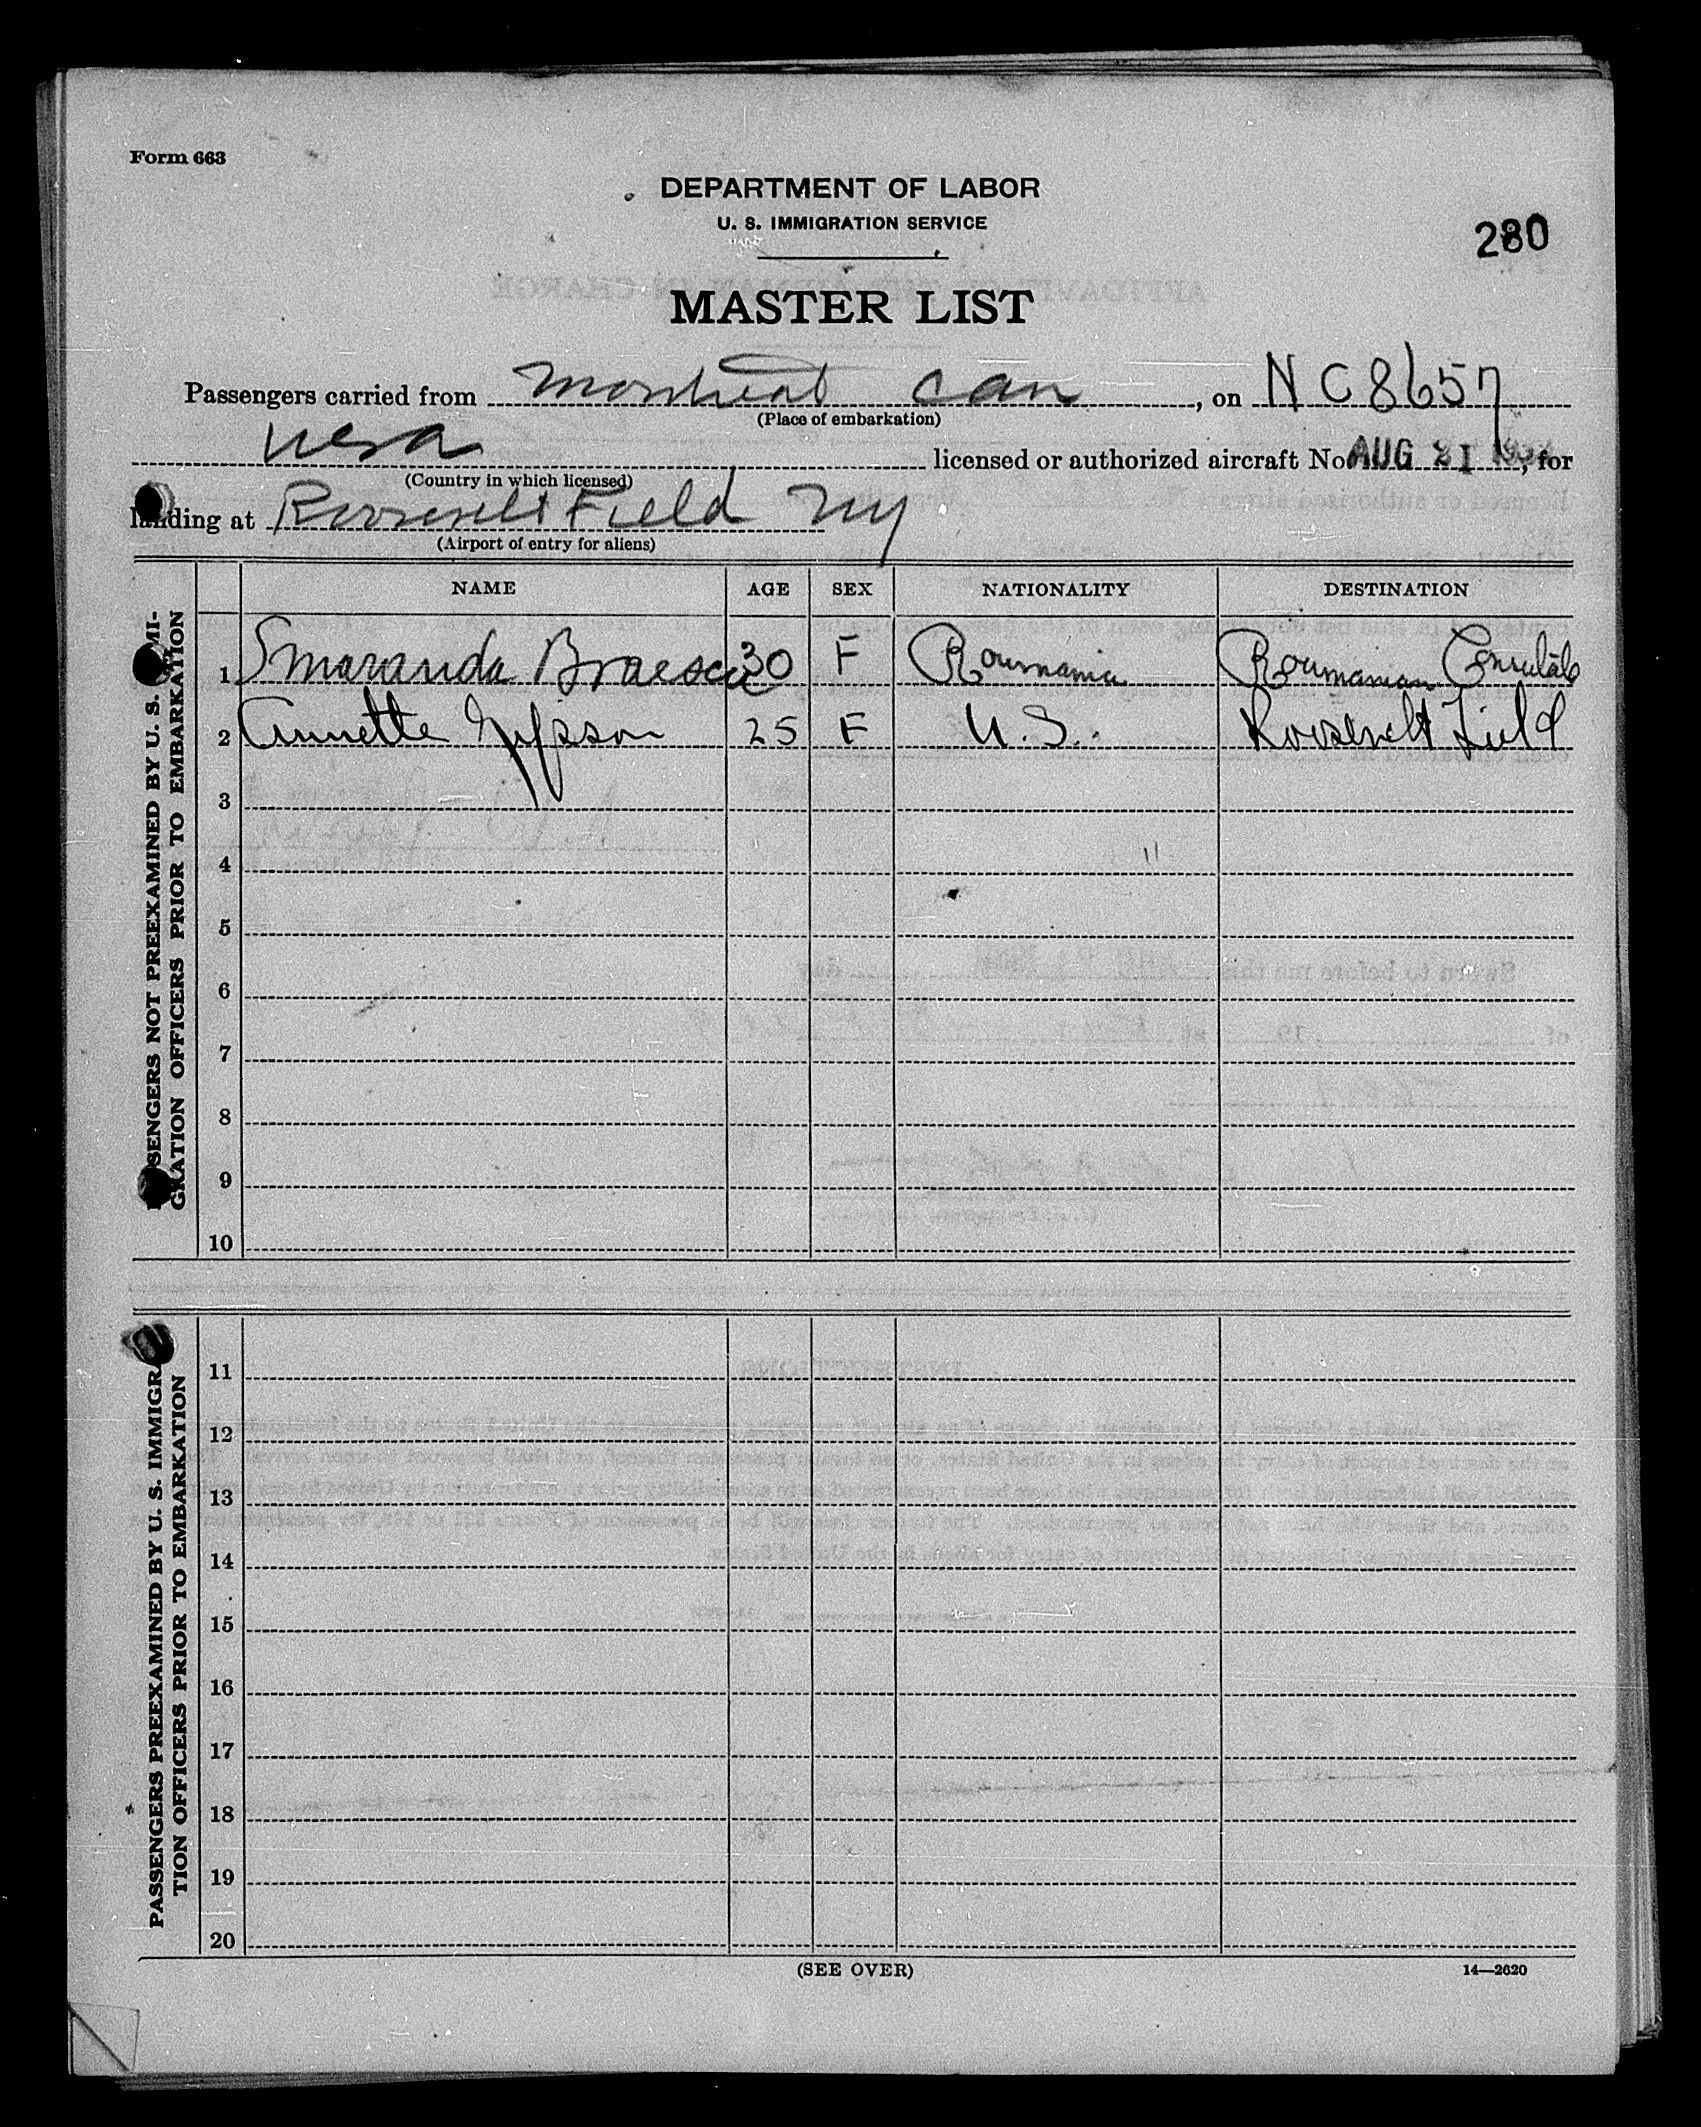 Form 663
DEPARTMENT OF LABOR
U. S. IMMIGRATION SERVICE
280
MASTER LIST
Passengers carried from Montreal Can, on NC8657
(Place of embarkation)
USA licensed or authorized aircraft No. AUG 21, for
(Country in which licensed)
landing at Roosevelt Field NY
(Airport of entry for aliens)
NAME AGE SEX NATIONALITY DESTINATION
PASSENGERS NOT PREEXAMINED BY U. S. IMMI-
GRATION OFFICERS PRIOR TO EMBARKATION
1 Smaranda Braescu 30 F Roumania Roumanian Consulate
2 Annette 25 F U.S. Roosevelt Field
3
4
5
6
7
8
9
10
PASSENGERS PREEXAMINED BY U. S. IMMIGRA-
TION OFFICERS PRIOR TO EMBARKATION
11
12
13
14
15
16
17
18
19
20
(SEE OVER)
14—2620